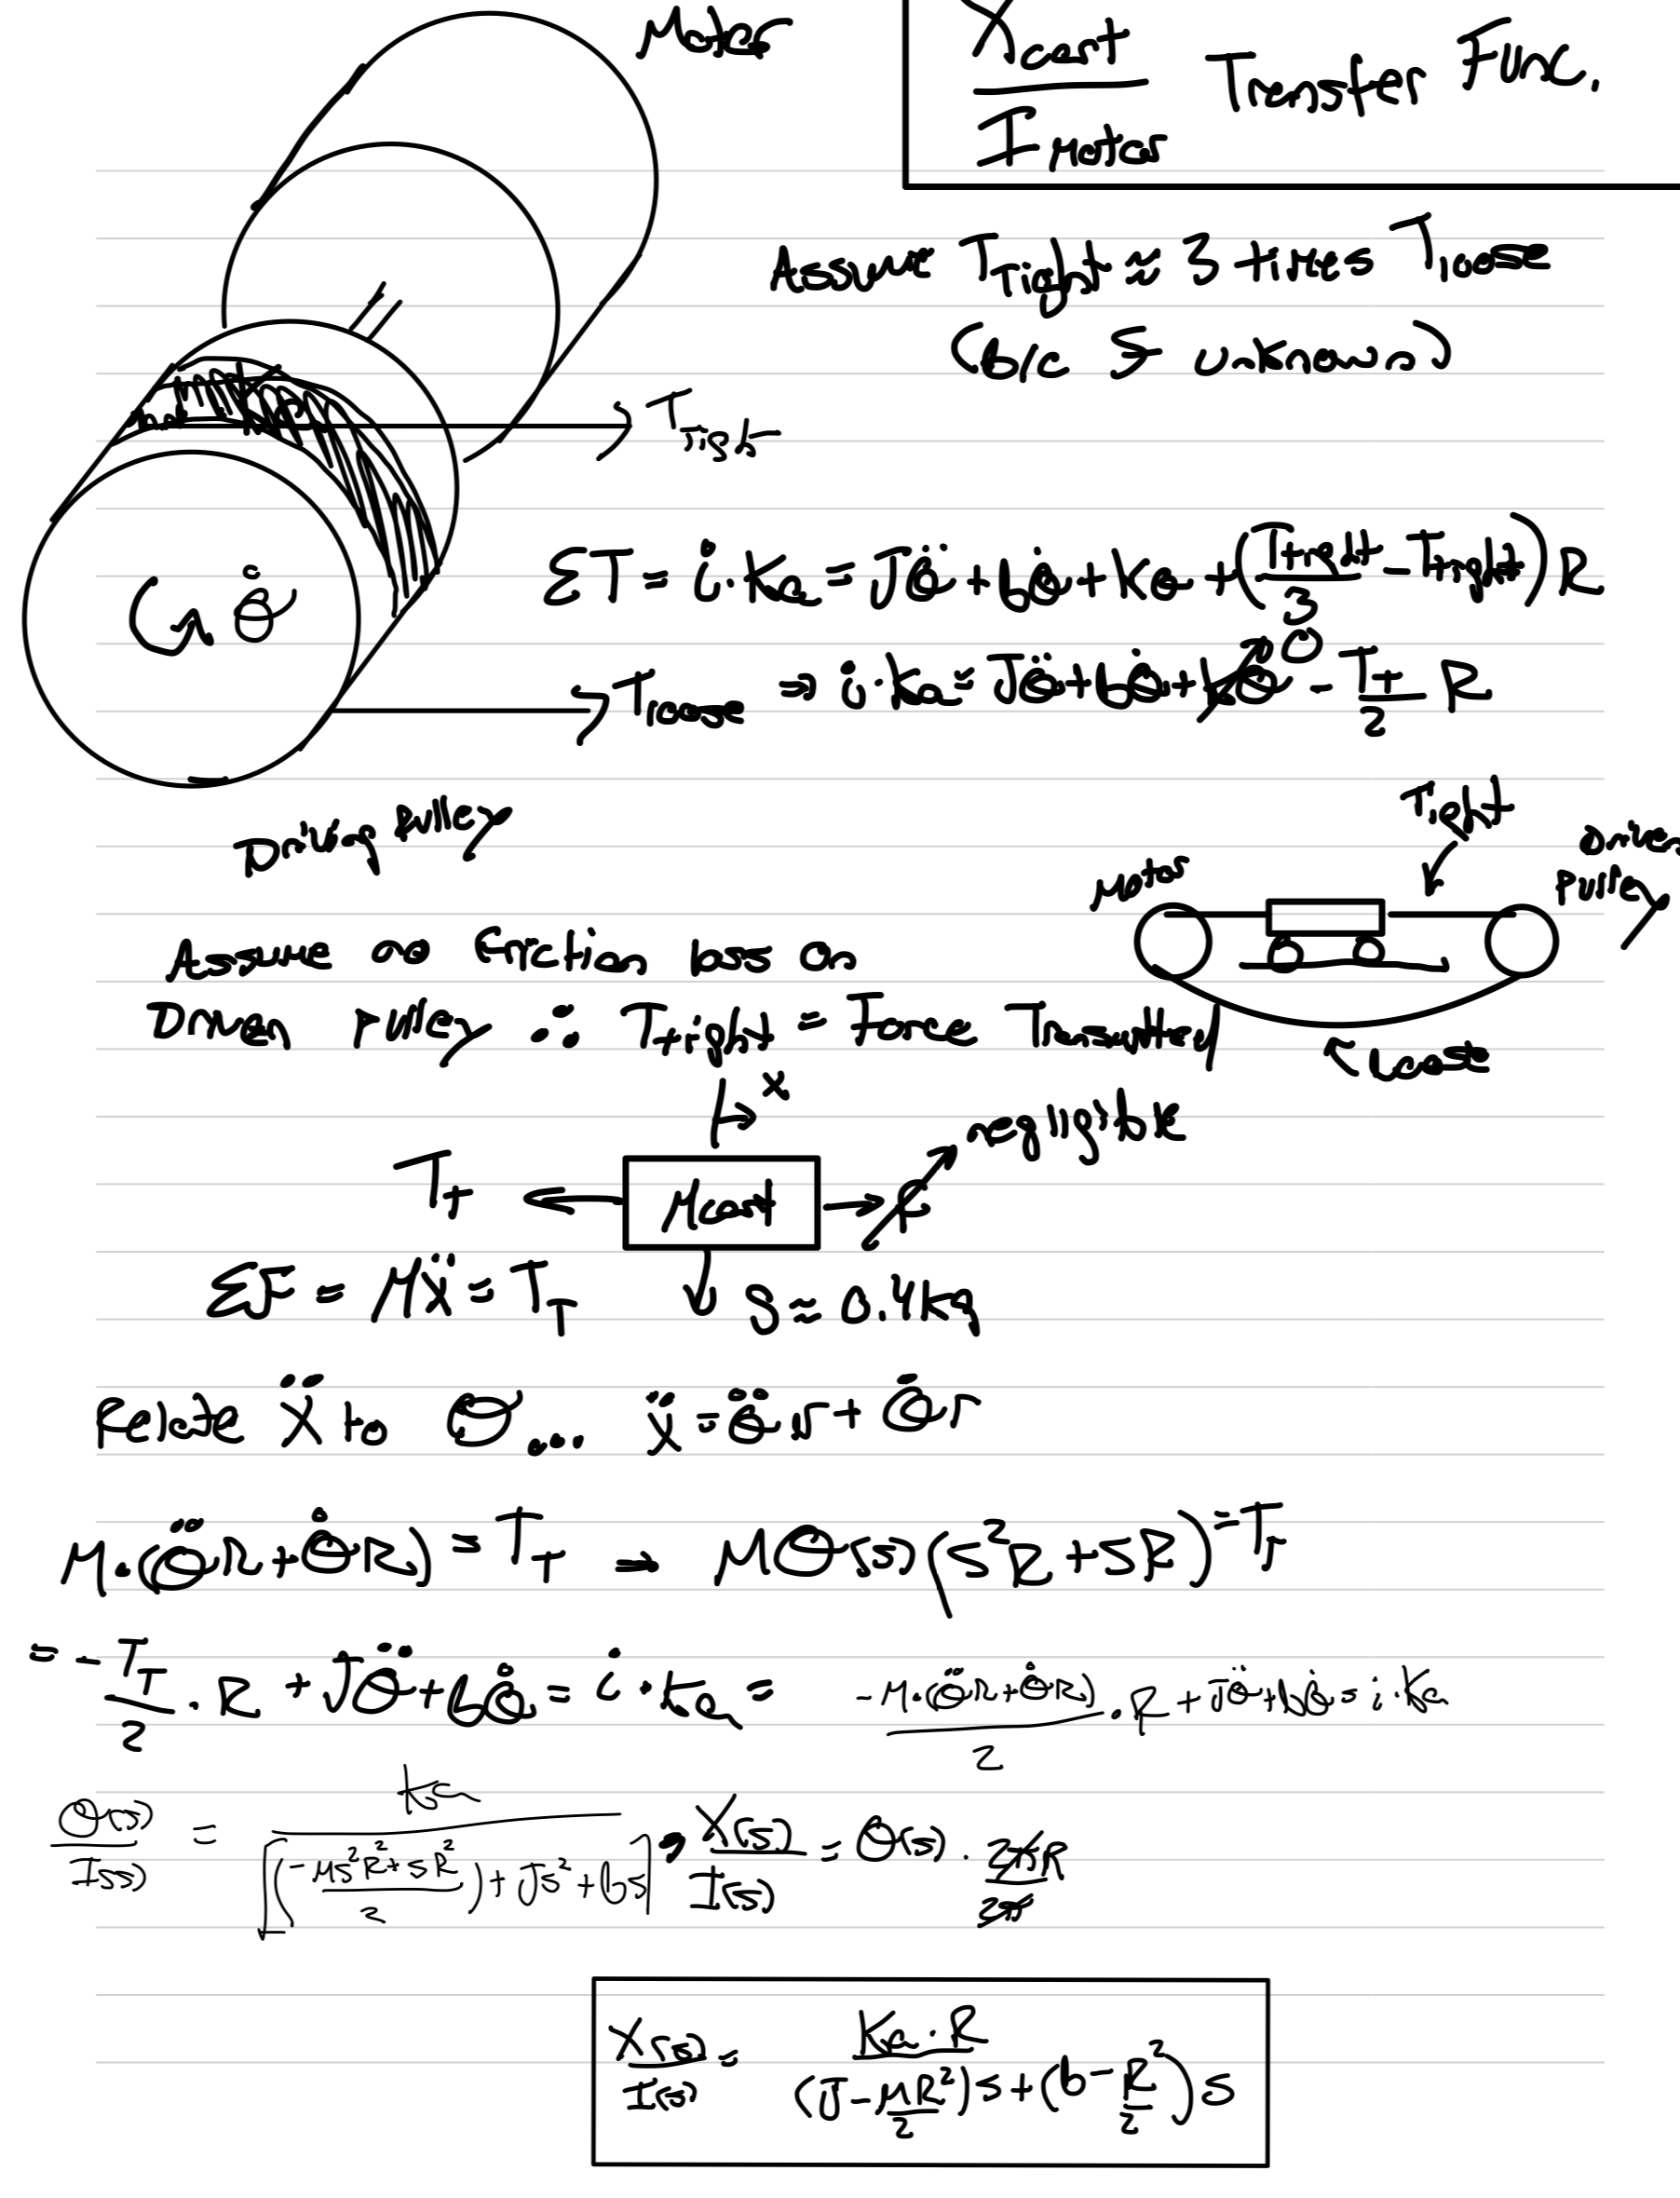 Motor
Xcart / IMotor Transfer Func.
Assume TTight ≈ 3 times Tloose
(b/c S unknown)
TTight
ΣT = i·Ka = Jθ̈ + bθ̇ + Kθ + (Ttight/3 - Ttight) R
θ̇
Tloose ⇒ i·Ka = Jθ̈ + bθ̇ + Kθ→0 - Tt/2 R
Driving Pulley
Motor Tight Driven Pulley
Loose
Assume no friction loss on
Driven pulley ∴ Ttight = Force Transmitted
x
TT ← Mcart → f negligible
ΣF = Mẍ = TT ↓ S ≈ 0.4kg
Relate ẍ to θ... ẍ = θ̈r + θ̇r
M·(θ̈R + θ̇R) = TT ⇒ Mθ(s)(s²R + sR) = TT
= -TT/2 · R + Jθ̈ + bθ̇ = i·Ka = -M·(θ̈R + θ̇R)/2 · R + Jθ̈ + bθ̇ = i·Ka
θ(s)/I(s) = Ka / [(-Ms²R² + sR²/2) + Js² + bs] , X(s)/I(s) = θ(s) · 2πR/2π
X(s)/I(s) = Ka·R / (J - MR²/2)s + (b - R²/2)s